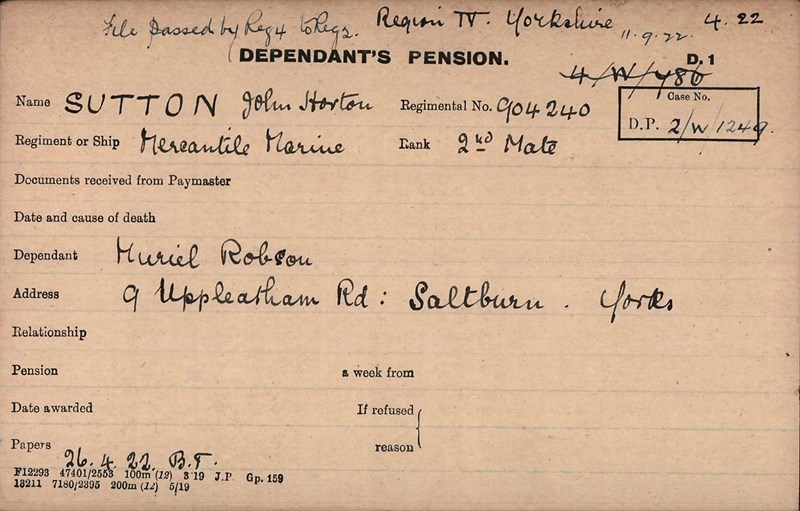 File passed by Reg 4 to Reg 2. Region IV. Yorkshire 11.9.22. 4.22
DEPENDANT'S PENSION. D.1
4/W/486
Name SUTTON John Horton Regimental No. 904240 Case No.
Regiment or Ship Mercantile Marine Rank 2nd Mate D.P. 2/W/1249.
Documents received from Paymaster
Date and cause of death
Dependant Muriel Robson
Address 9 Uppleatham Rd: Saltburn. Yorks
Relationship
Pension a week from
Date awarded If refused
Papers 26.4.22. B.T. reason
F12293 47401/2553 100m (12) 3 19 J.P. Gp. 159
13211 7180/2395 200m (12) 5/19